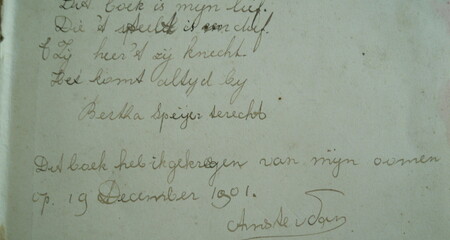 Dit boek is mijn lief.
Die 't steelt is een dief.
't Zij heer 't zij knecht
Het komt altyd by
Bertha Speijer terecht
Dit boek heb ik gekregen van mijn oomen
op. 19 December 1901.
Amsterdam